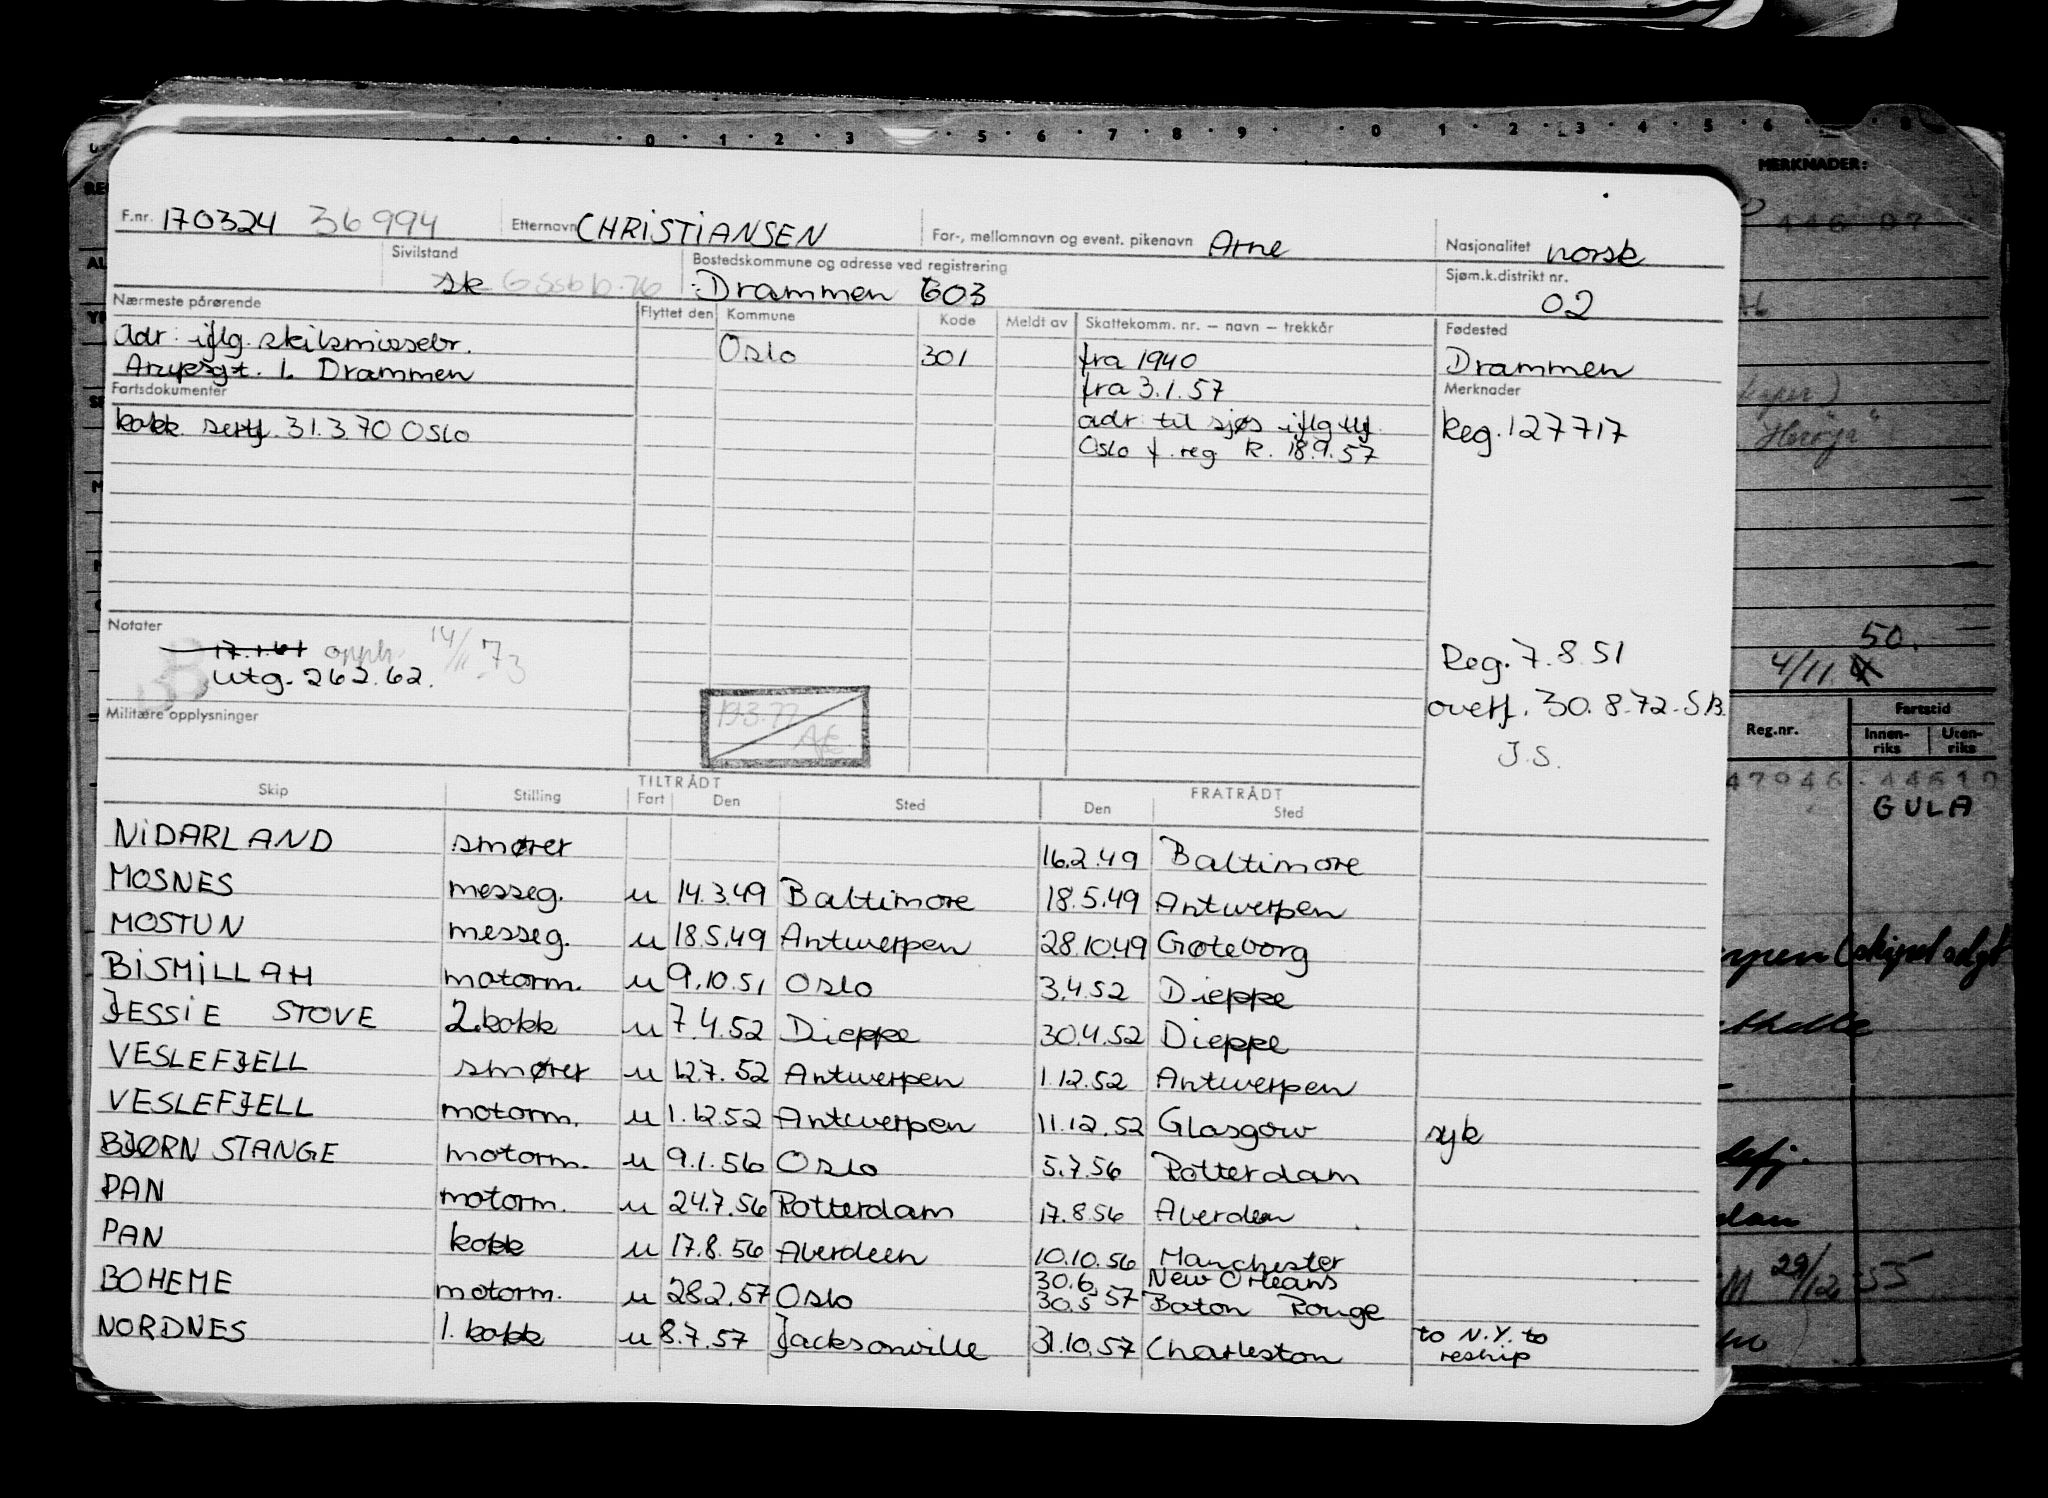 0 1 2 3 5 6 7 8 9 0 1 2 3 4 5 6 8
MERKNADER:
F.nr. 170324 36994 Etternavn CHRISTIANSEN For-, mellomnavn og event. pikenavn Arne Nasjonalitet norsk
Sivilstand sk Bostedskommune og adresse ved registrering Drammen 603 Sjøm.k.distrikt nr. 02
Nærmeste pårørende Flyttet den Kommune Kode Meldt av Skattekomm. nr. – navn – trekkår Fødested
Adr: iflg. skilsmissebr. Oslo 301 fra 1940 Drammen
Arupsgt. 1. Drammen fra 3.1.57 Merknader
Fartsdokumenter adr til sjøs iflg tlf.
kokk sertf. 31.3.70 Oslo Oslo f. reg R. 18.9.57 Reg. 127717
Notater
17.1.61 opph. 14/11 73
utg. 262.62.
Reg. 7.8.51
overf. 30.8.72-S.B.
J.S.
Militære opplysninger
19.3.77
50.
4/11
Reg.nr. Fartstid
Innen-riks Uten-riks
GULA
TILTRÅDT FRATRÅDT
Skip Stilling Fart Den Sted Den Sted
NIDARLAND smører 16.2.49 Baltimore
MOSNES messeg. u 14.3.49 Baltimore 18.5.49 Antwerpen
MOSTUN messeg. u 18.5.49 Antwerpen 28.10.49 Gøteborg
BISMILLAH motorm. u 9.10.51 Oslo 3.4.52 Dieppe
JESSIE STOVE 2.kokk u 7.4.52 Dieppe 30.4.52 Dieppe
VESLEFJELL smører u 12.7.52 Antwerpen 1.12.52 Antwerpen
VESLEFJELL motorm. u 1.12.52 Antwerpen 11.12.52 Glasgow syk
BJØRN STANGE motorm. u 9.1.56 Oslo 5.7.56 Rotterdam
PAN motorm. u 24.7.56 Rotterdam 17.8.56 Aberdeen
PAN kokk u 17.8.56 Aberdeen 10.10.56 Manchester
30.6. New Orleans
BOHEME motorm. u 28.2.57 Oslo 30.5 57 Baton Rouge
NORDNES 1. kokk u 8.7.57 Jacksonville 31.10.57 Charleston to N.Y. to
reship
29/12 55